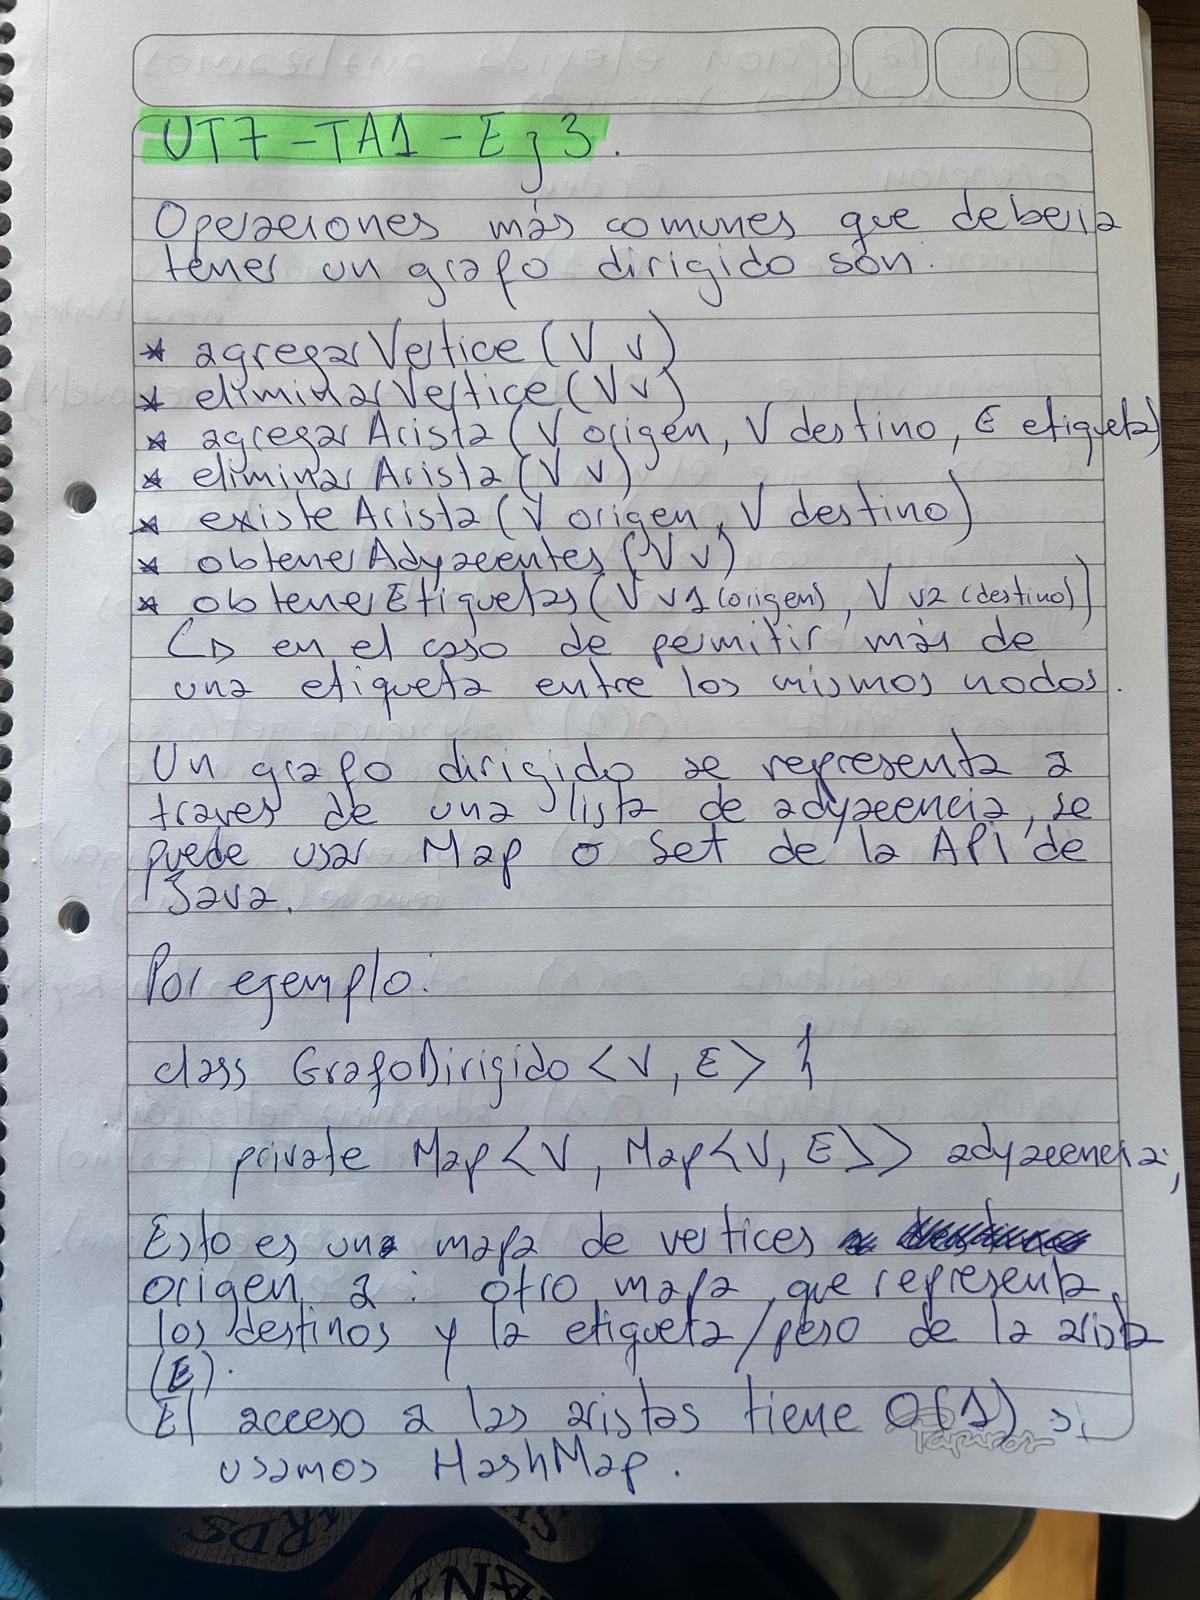 UT7 - TA1 - Ej 3.
Operaciones más comunes que deberia
tener un grafo dirigido son:
* agregarVertice (V v)
* eliminarVertice (V v)
* agregarArista (V origen, V destino, E etiqueta)
* eliminarArista (V v)
* existeArista (V origen, V destino)
* obtenerAdyacentes (V v)
* obtenerEtiquetas (V v1 (origen), V v2 (destino))
↳ en el caso de permitir más de
una etiqueta entre los mismos nodos.
Un grafo dirigido se representa a
traves de una lista de adyacencia, se
puede usar Map o Set de la API de
Java.
Por ejemplo:
class GrafoDirigido <V, E> {
private Map <V, Map <V, E>> adyacencia;
Esto es una mapa de vertices
origen a: otro mapa que representa
los destinos y la etiqueta/peso de la arista
(E).
El acceso a las aristas tiene O(1) si
usamos HashMap.
Papiros